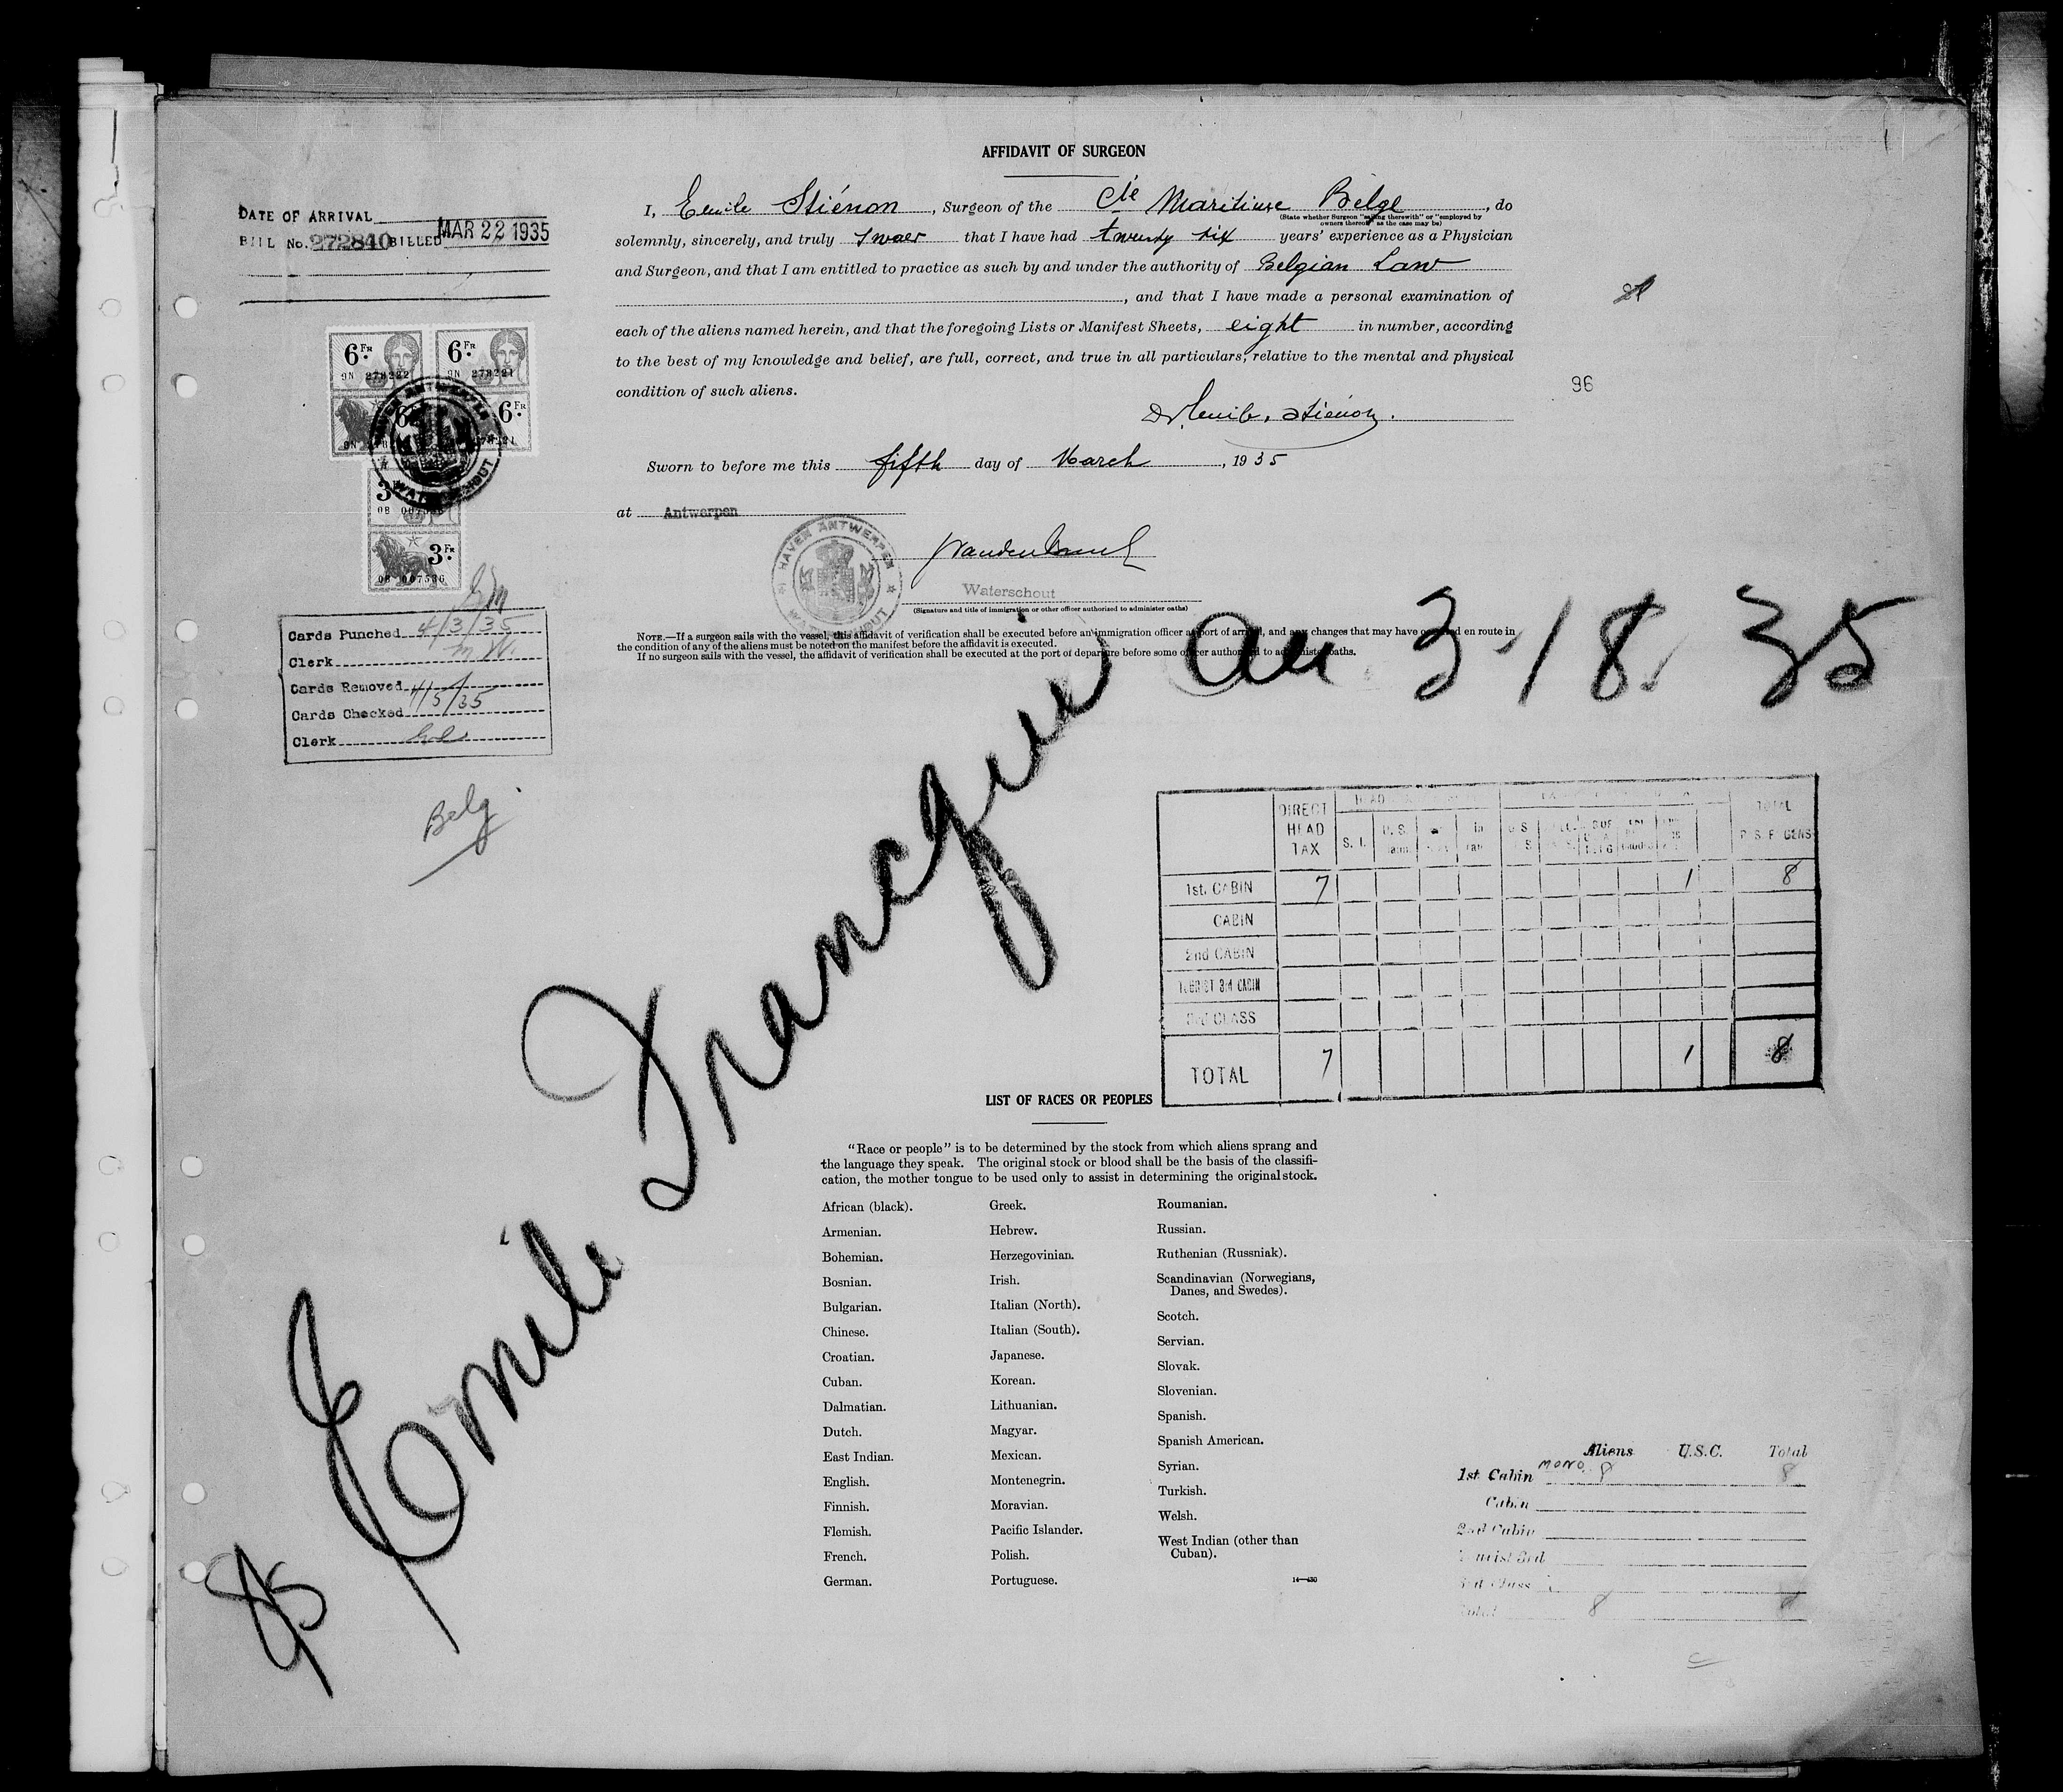 AFFIDAVIT OF SURGEON
I, Emile Stiénon, Surgeon of the Cie Maritime Belge, do
(State whether Surgeon "sailing therewith" or "employed by owners thereof" as the case may be)
solemnly, sincerely, and truly swaer that I have had twenty six years' experience as a Physician
and Surgeon, and that I am entitled to practice as such by and under the authority of Belgian Law
, and that I have made a personal examination of
each of the aliens named herein, and that the foregoing Lists or Manifest Sheets, eight in number, according
to the best of my knowledge and belief, are full, correct, and true in all particulars, relative to the mental and physical
condition of such aliens.
96
Dr. Emile, Stiénon.
Sworn to before me this fifth day of March, 1935
at Antwerpen
HAVEN ANTWERPEN
WATERSCHOUT
Waterschout
(Signature and title of immigration or other officer authorized to administer oaths)
NOTE.—If a surgeon sails with the vessel, this affidavit of verification shall be executed before an immigration officer at port of arrival, and any changes that may have occurred en route in
the condition of any of the aliens must be noted on the manifest before the affidavit is executed.
If no surgeon sails with the vessel, the affidavit of verification shall be executed at the port of departure before some officer authorized to administer oaths.
DATE OF ARRIVAL
BILL No. 272840 BILLED MAR 22 1935
6 FR 6 FR
9N 278222 9N 278221
6 FR
3 FR
0B 007536
Cards Punched 4/3/35
Clerk M.W.
Cards Removed
Cards Checked 4/5/35
Clerk
Belg
Emile Francqui
arr 3-18-35
DIRECT HEAD TAX
S. I.
U. S.
TOTAL
1st. CABIN 7 1 8
CABIN
2nd CABIN
TOURIST 3rd CABIN
3rd CLASS
TOTAL 7 1 8
LIST OF RACES OR PEOPLES
"Race or people" is to be determined by the stock from which aliens sprang and
the language they speak. The original stock or blood shall be the basis of the classifi-
cation, the mother tongue to be used only to assist in determining the original stock.
African (black).
Armenian.
Bohemian.
Bosnian.
Bulgarian.
Chinese.
Croatian.
Cuban.
Dalmatian.
Dutch.
East Indian.
English.
Finnish.
Flemish.
French.
German.
Greek.
Hebrew.
Herzegovinian.
Irish.
Italian (North).
Italian (South).
Japanese.
Korean.
Lithuanian.
Magyar.
Mexican.
Montenegrin.
Moravian.
Pacific Islander.
Polish.
Portuguese.
Roumanian.
Russian.
Ruthenian (Russniak).
Scandinavian (Norwegians,
Danes, and Swedes).
Scotch.
Servian.
Slovak.
Slovenian.
Spanish.
Spanish American.
Syrian.
Turkish.
Welsh.
West Indian (other than
Cuban).
14—430
Aliens U.S.C. Total
1st Cabin mono 8 8
Cabin
2nd Cabin
Tourist 3rd
3rd Class
Total 8 8